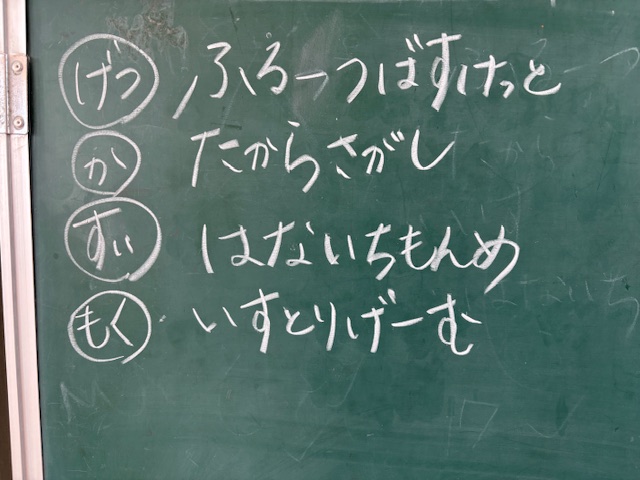 げつ ふるーつばすけっと
か たからさがし
すい はないちもんめ
もく いすとりげーむ